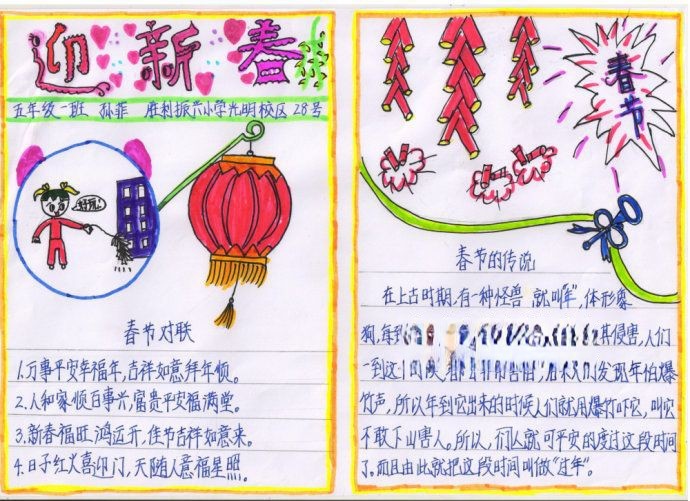 迎新春
五年级一班 孙菲 胜利振兴小学光明校区 28号
好玩!
春节对联
1.万事平安幸福年,吉祥如意拜年顺。
2.人和家顺百事兴,富贵平安福满堂。
3.新春福旺鸿运开,佳节吉祥如意来。
4.日子红火喜迎门,天随人意福星照。
春节
春节的传说
在上古时期,有一种怪兽 就叫"年",体形象
狗,每到 其侵害,人们
一到这 发现年怕爆
竹声,所以年到它出来的时候人们就用爆竹吓它,叫它
不敢下山害人。所以,们么就可平安的度过这段时间
了。而且由此就把这段时间叫做"过年"。